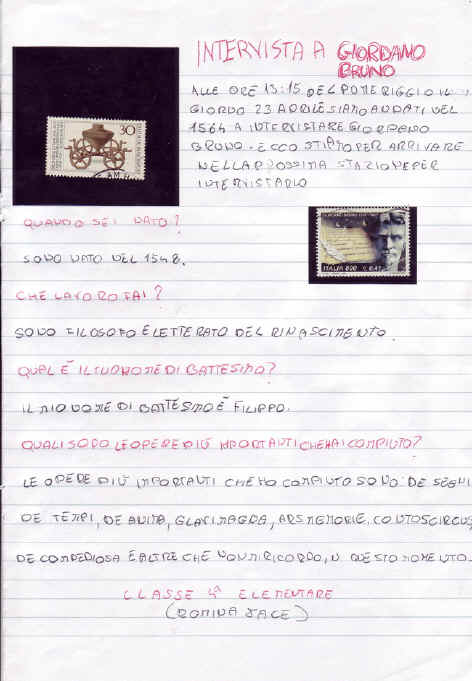 INTERVISTA A GIORDANO
BRUNO
ALLE ORE 13:15 DEL POMERIGGIO IL
GIORNO 23 APRILE SIAMO ANDATI NEL
1564 A INTERVISTARE GIORDANO
BRUNO. ECCO STIAMO PER ARRIVARE
NELLA PROSSIMA STAZIONE PER
INTERVISTARLO
30
QUANDO SEI NATO?
SONO NATO NEL 1548.
ITALIA 800
CHE LAVORO FAI?
SONO FILOSOFO E LETTERATO DEL RINASCIMENTO.
QUAL È IL TUO NOME DI BATTESIMO?
IL MIO NOME DI BATTESIMO È FILIPPO.
QUALI SONO LE OPERE PIÙ IMPORTANTI CHE HAI COMPIUTO?
LE OPERE PIÙ IMPORTANTI CHE HO COMPIUTO SONO: DE SEGNI
DE TEMPI, DE ANIMA, CLAVI MAGNA, ARS MEMORIE, CONTOSCIRCUS,
DE COMPEDIOSA E ALTRE CHE NON MI RICORDO, IN QUESTO MOMENTO.
CLASSE 4ª ELEMENTARE
(ROMINA JACE)